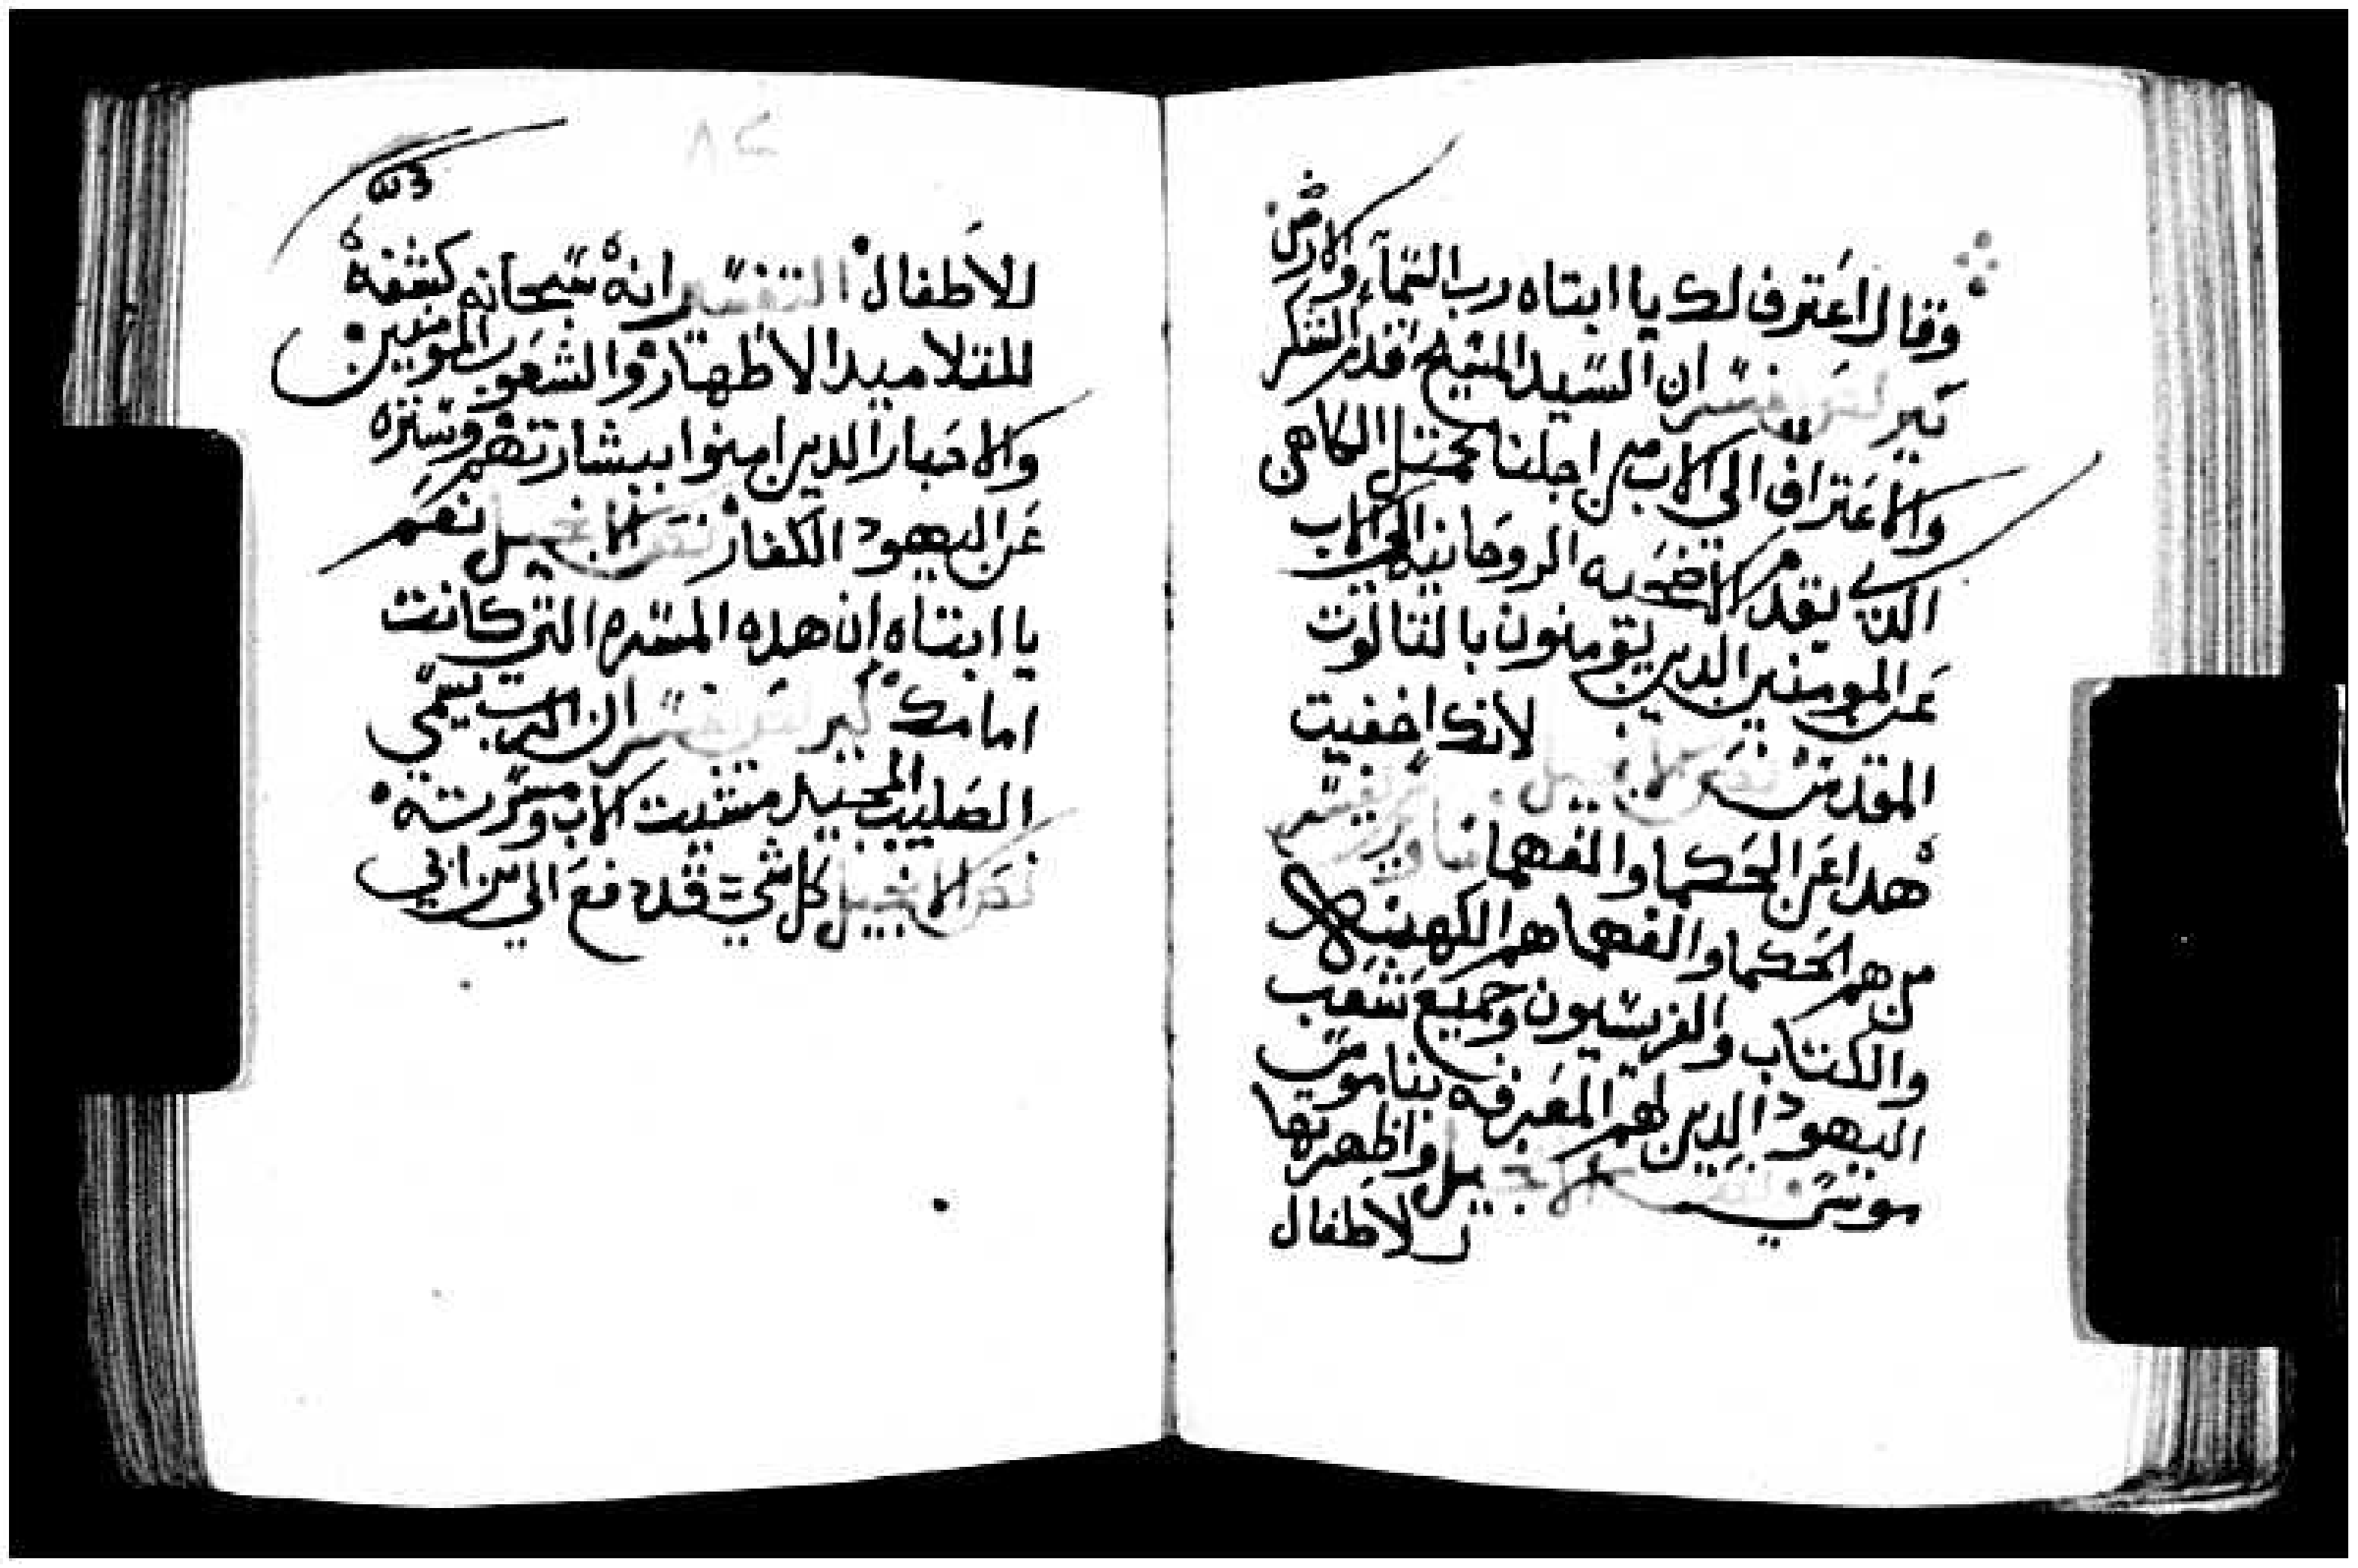 وقال اعترف لك يا ابتاه رب السماء والارض
ان السيد المسيح قدم الشكر
والاعتراف الي الاب من اجلنا كمتل الكاهن
الدي يقدم الاضحيه الروحانيه الي الاب
عن المومنين الدين يومنون بالتالوت
المقدس نص الانجيل لانك اخفيت
هدا عن الحكما والفهما
من هم الحكما والفهما هم الكهنه
والكتاب والفرسيون وجميع شعب
اليهود الدين لهم المعرفه بناموس
موسي نص الانجيل واظهرتها
للاطفال
للاطفال التفسير انه سبحانه كشفه
للتلاميد الاطهار والشعوب المومنين
والاحبار الدين امنوا ببشارتهم وستره
عن اليهود الكفار نص الانجيل نعم
يا ابتاه ان هده المسره التي كانت
امامك تفسير ان الرب يسمي
الصليب المجيد مشيت الاب ومسرته
نص الانجيل كل شي قد دفع الي من ابي